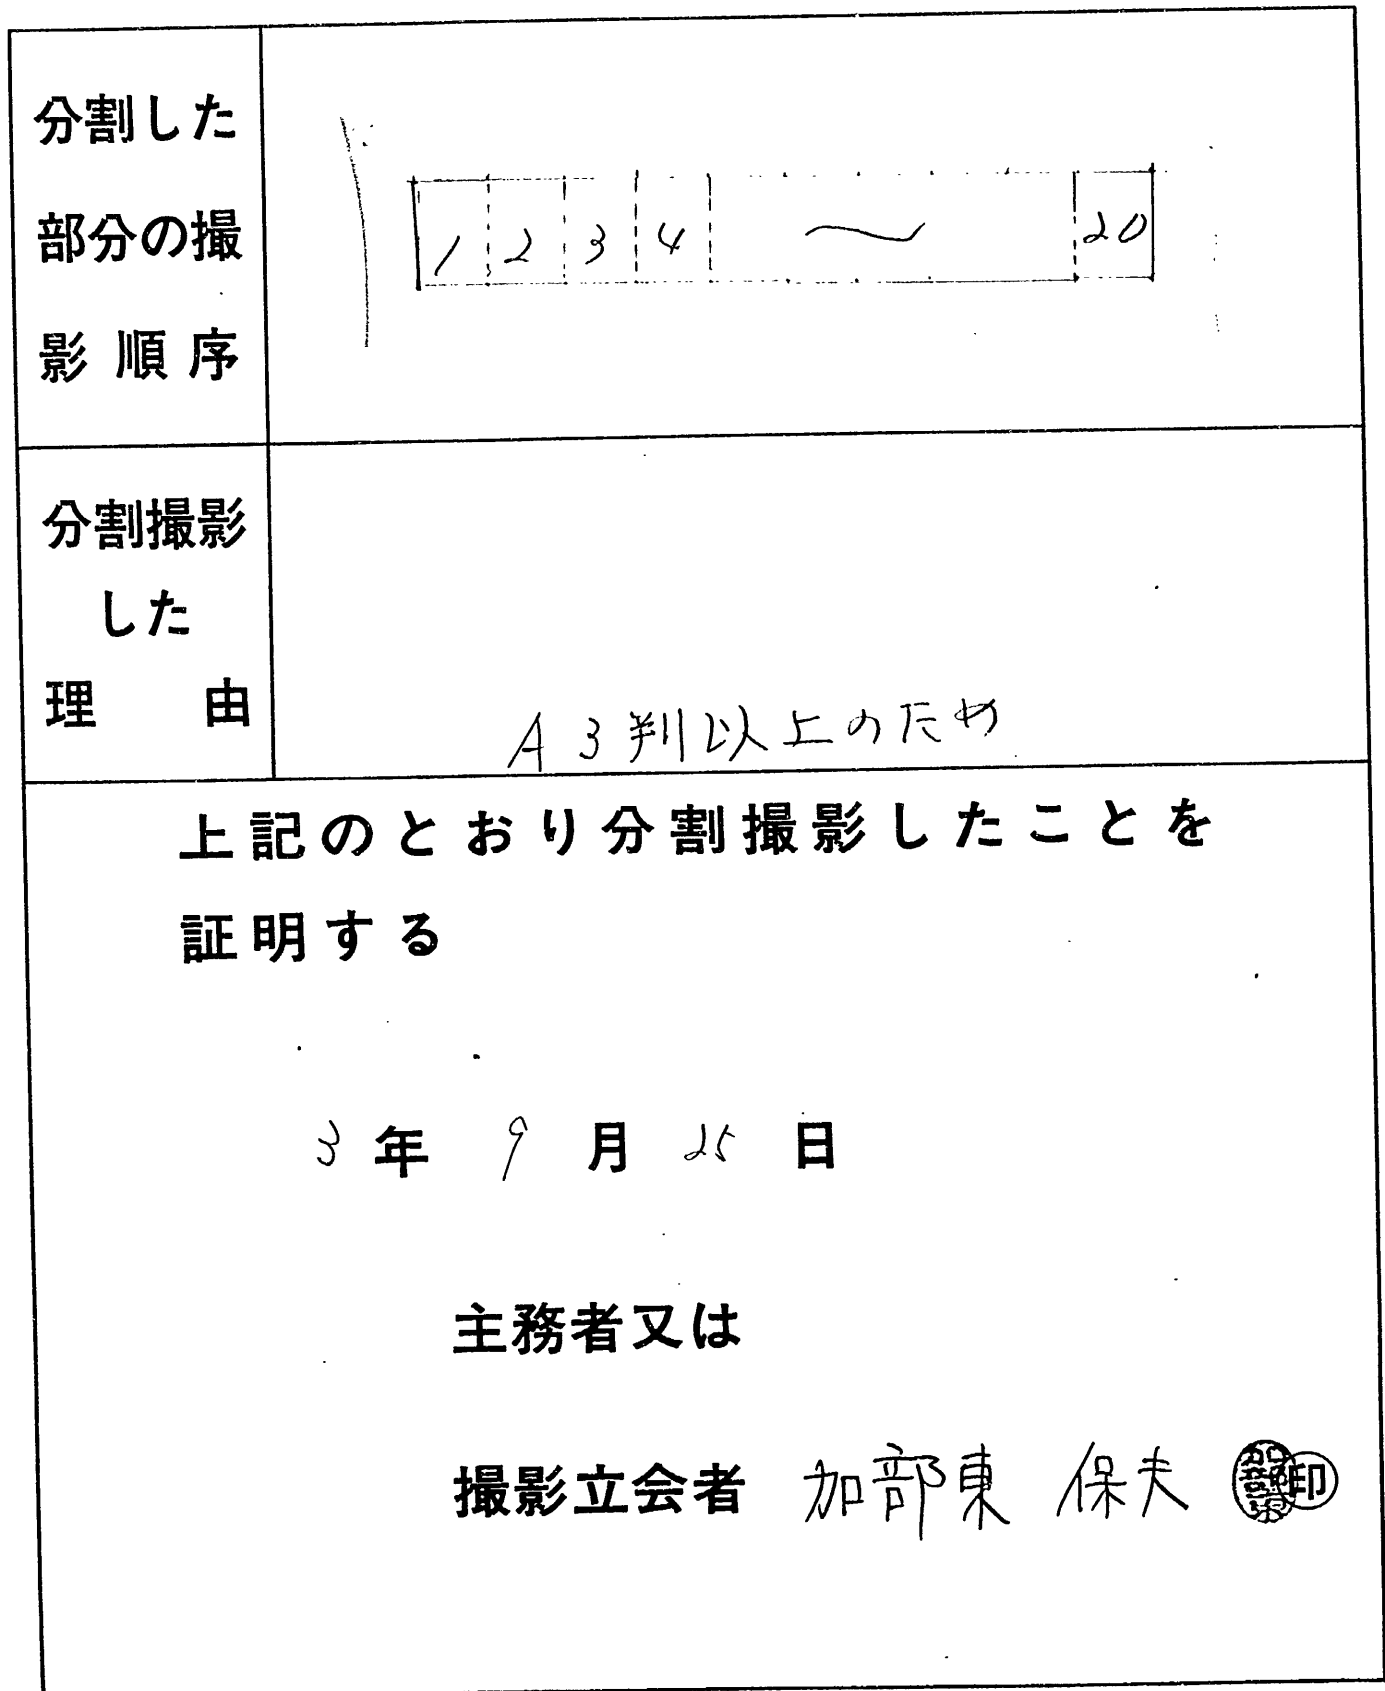 分割した
部分の撮
影順序
1 2 3 4 〜 20
分割撮影
した
理由
A3判以上のため
上記のとおり分割撮影したことを
証明する
3年9月25日
主務者又は
撮影立会者 加部東 保夫 加部東 印